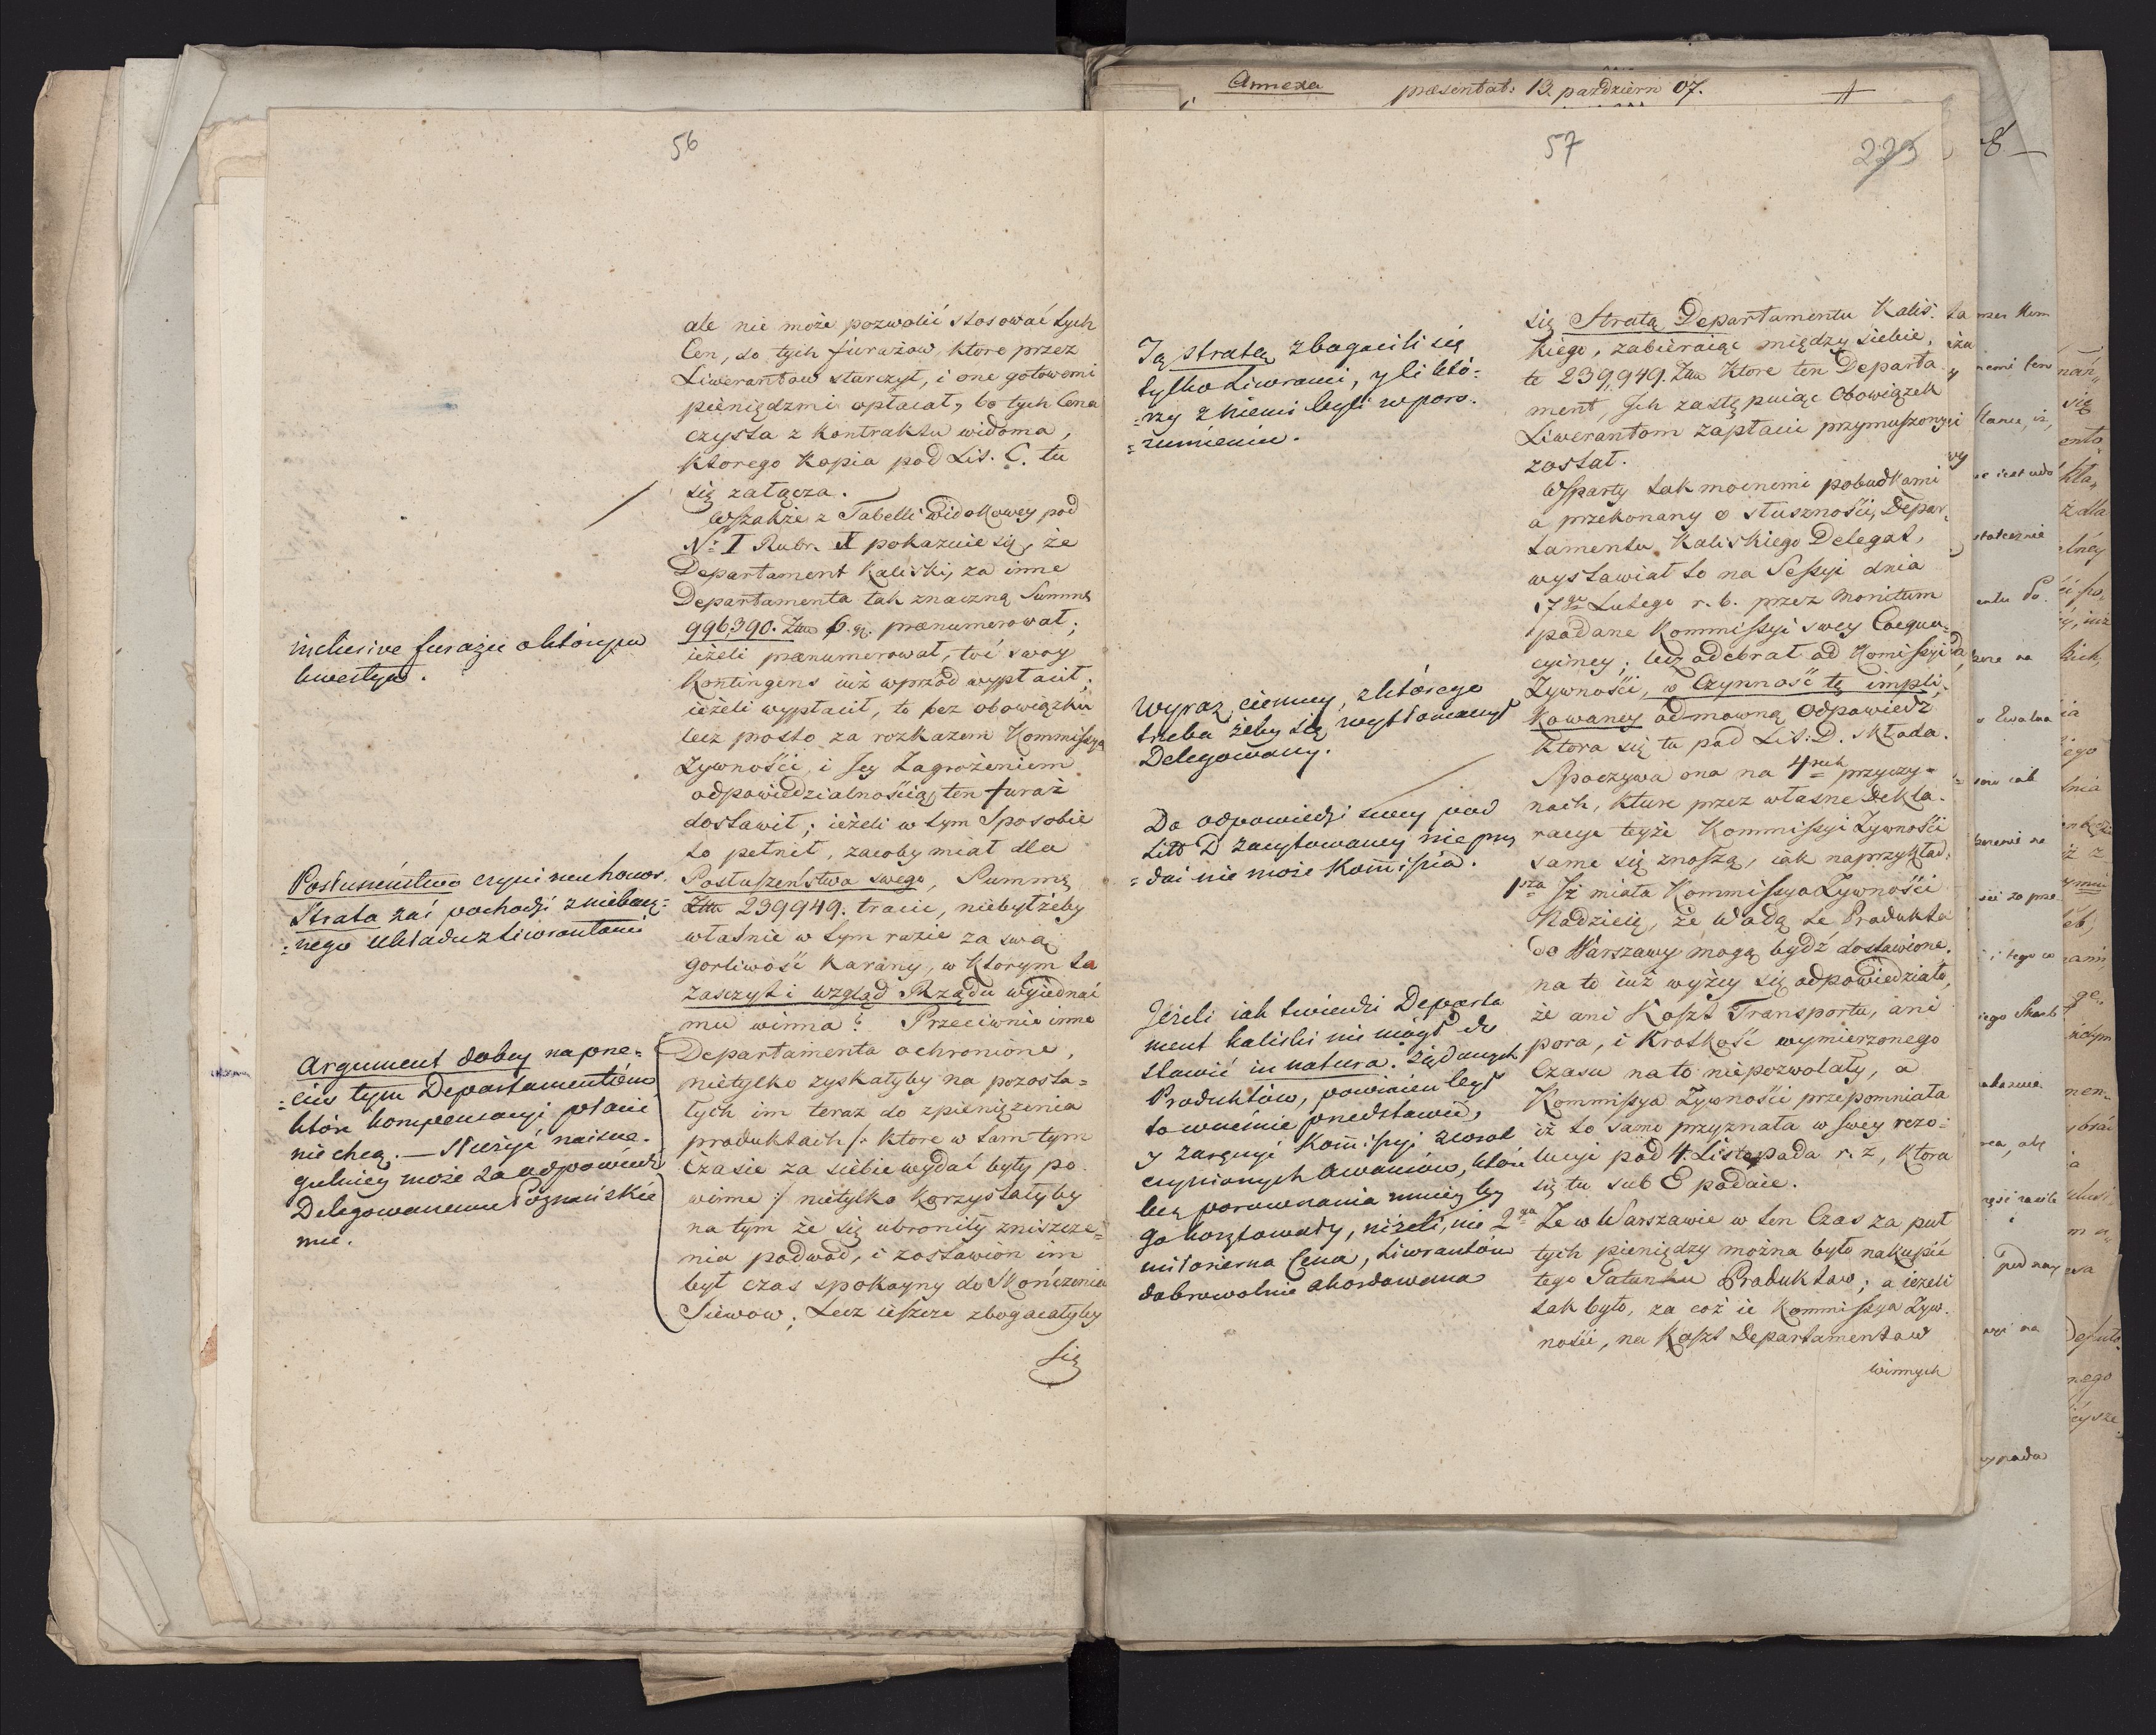 Annexa præsentat: 13. październ 07.
56
ale nie może pozwolić stosować tych
Cen, do tych furażow, ktore przez
Liwerantow starczył, i one gotowemi
pieniędzmi opłacał, bo tych Cena
czysta z kontraktu widoma,
ktorego Kopia pod Lit. C. tu
się załącza.
Wszakże z Tabelli widokowey pod
No I Rubr. II pokazuie się, że
Departament Kaliski, za inne
Departamenta tak znaczną Summę
996390. Zło 6. gr. prænumerował;
ieżeli prænumerował, toć swoy
Kontingens iuż wprzod wypłacił;
ieżeli wypłacił, to bez obowiązku
lecz prosto za rozkazem Kommissyi
Zywności, i Jey Zagrożeniem
odpowiedzialnością, ten furaż
dostawił; ieżeli w tym Sposobie
to pełnił, zacoby miał dla
Posłuszeństwa swego, Summę
Złło 239949. tracić, niebyłżeby
właśnie w tym razie za swą
gorliwość Karany, w ktorym ta
Zaszczyt i wzgląd Rządu wyiednać
mu winna? Przeciwnie inne
Departamenta ochronione,
nietylko zyskałyby na pozosta=
łych im teraz do zpieniężenia
produktach /: ktore w tam tym
Czasie za siebie wydać były po
winne :/ nietylko korzystałyby
na tym że się ubroniły zniszcze=
nia podwod, i zostawion im
był czas spokoyny do Skończenia
Siewow; Lecz ieszcze zbogacałyby
się
inclusive furażu o którym
kwestya.
Posłuszeństwo czyni mu honor.
Strata zaś pochodzi z niebacz=
=nego układu z Liwerantami
Argument dobry naprze=
=ciw tym Departamentom
które kompensacyi płacić
nie chcą. — Służyć naiszcze=
gulniey może za odpowiedź
Delegowanemu Poznańskie
mu.
57
223
Tą stratą zbogacili się
tylko Liweranci, y ci któ=
=rzy z niemi byli w poro=
=zumieniu.
Wyraz ciemny, z którego
trzeba żeby się wytłomaczył
Delegowany.
Do odpowiedzi swey pod
Litt D zacytowaney nie przy
=dać nie może Kommissia.
Jeżeli iak twierdzi Departa
ment kaliski nie mógł do
stawić in natura żądanych
Produktów, powinien był
to wcześnie przedstawić,
y zasyngi Kommissyi
czynionych Awansów, które
bez porownania mniey by
go kosztowały, niżeli, nie
miłosierna Cena, Liwerantów
dobrowolnie akordowana
się Stratą Departamentu Kalis=
kiego, zabieraiąc między siebie,
te 239,949. Złło Ktore ten Departa
ment, Ich zastępuiąc Obowiązek
Liwerantom zapłacić przymuszony
został.
Wsparty tak mocnemi pobudkami
a przekonany o słuszności, Depar=
tamentu Kaliskiego Delegat,
wystawiał to na Sessyi dnia
17go Lutego r. b. przez Monitum
podane Kommissyi swey Coequa=
cyiney; lecz odebrał od Komissyi
Zywności, w Czynność tę impli=
kowaney odmowną Odpowiedź
ktora się tu pod Lit: D. składa.
Spoczywa ona na 4rech przyczy=
nach, kture przez własne Dekla=
racye teyże Kommissyi Zywności
same się znoszą, iak naprzykład:
1sza Iż miała Kommissya Zywności
Nadzieię, że Wodą te Produkta
do Warszawy mogą bydź dostawione.
na to iuż wyżey się odpowiedziało,
że ani Koszt Transportu, ani
pora, i Krotkość wymierzonego
Czasu na to niepozwolały, a
Kommissya Zywności przepomniała
iż to samo przyznała w swey rezo=
lucyi pod 4. Listopada r. z, ktora
się tu sub E podaie.
2ga Ze w Warszawie w ten Czas za puł
tych pieniędzy można było nakupić
tego Gatunku Produktow; a ieżeli
tak było, za coż ie Kommissya Zyw=
ności, na Koszt Departamentow
winnych